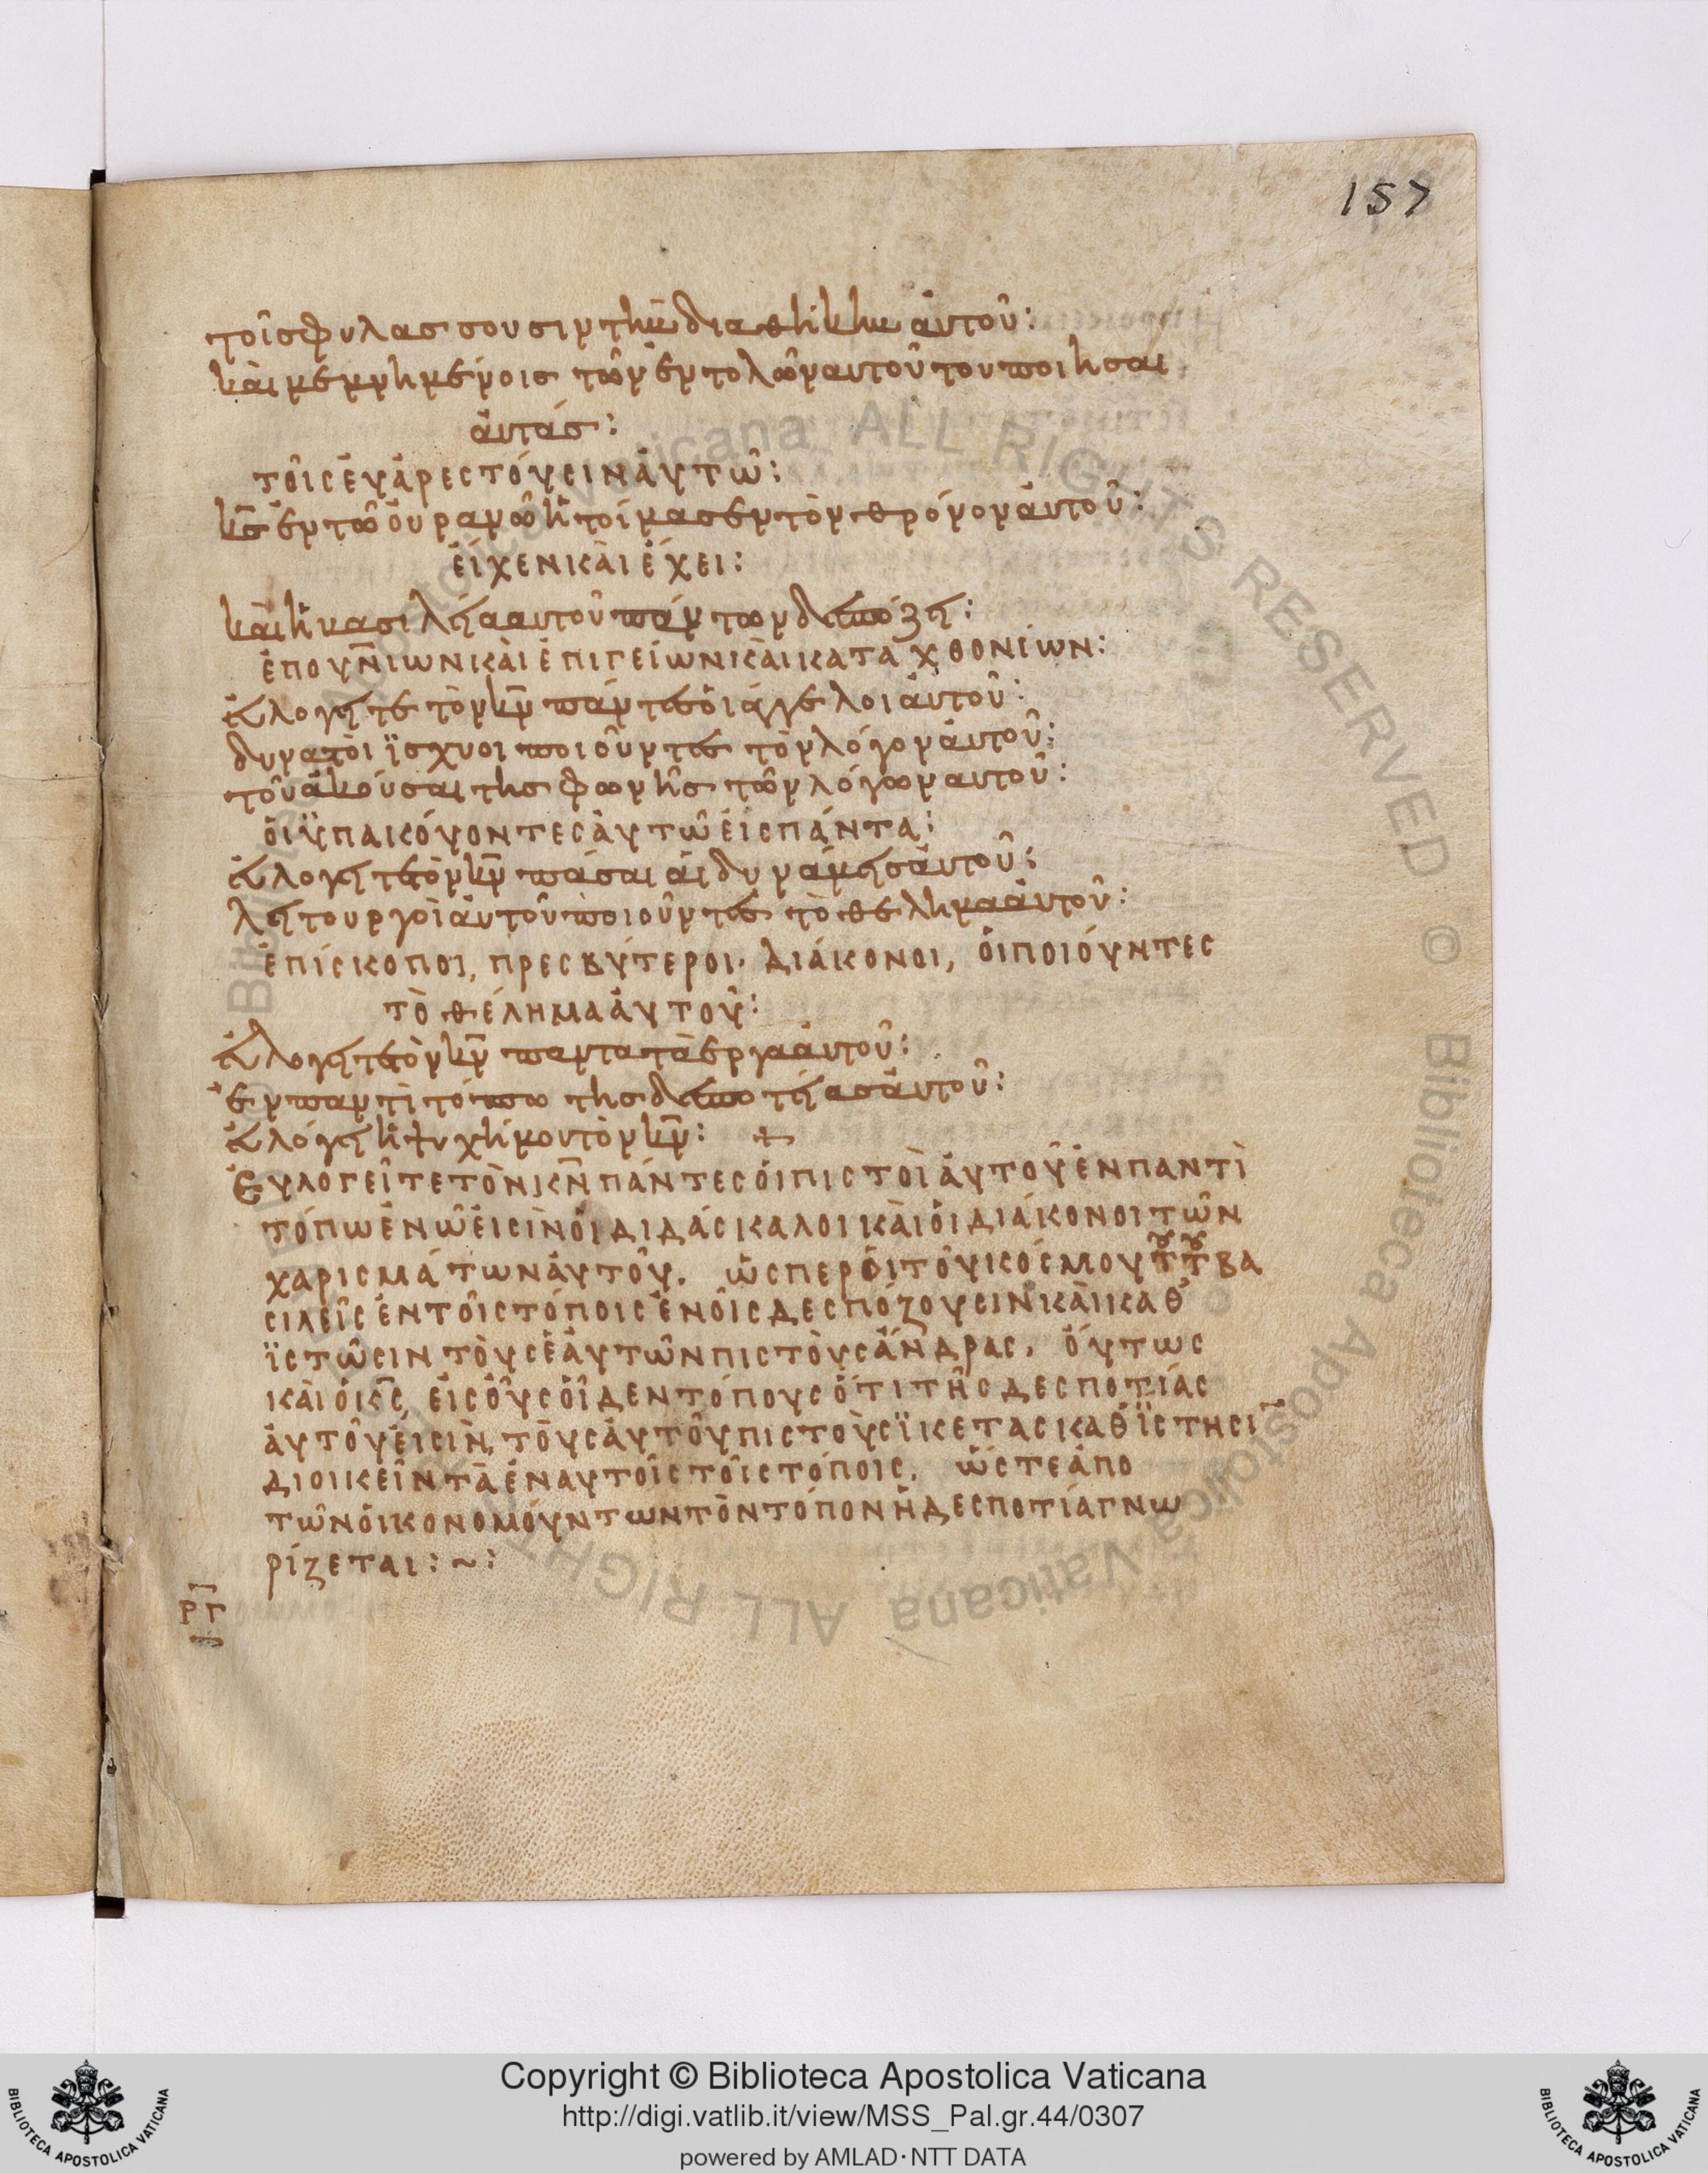 157
τοῖς φυλάσσουσιν τὴν διαθήκην ἀυτοῦ:
κὰι μεμνημένοις τῶν ἐντολῶν αυτοῦ του ποιησαι
ἀυτάς:
τοῖς ἐυἀρεστόυσιν ἀυτῶ:
κ̅ς̅ ἐν τῶ ὀυρανῶ ἡτοίμασεν τὸν θρόνον ἀυτοῦ:
ἐίχεν κὰι ἔχει:
κὰι ἡ βασιλεία αυτοῦ πάντων δεσπόζει:
ἐπουν̅ιων κὰι ἐπιγείων κὰι καταχθονίων:
ἐυλογειτε τὸν κ̅ν̅ πάντες ὁι ἄγγελοι ἀυτοῦ:
δυνατὸι ϊσχυοι ποιοῦντες τὸν λόγον ἀυτοῦ:
τοῦ ἀκούσαι της φωνῆς τῶν λόγων αυτοῦ:
ὁι ϋπακόυοντες ἀυτῶ ἐις πάντα:
ἐυλογειτε τὸν κ̅ν̅ πάσαι ἁι δυνάμεις ἀυτοῦ:
λειτουργοὶ ἀυτοῦ ποιοῦντες τὸ θελημα ἀυτοῦ:
ἐπίσκοποι, πρεσβύτεροι. διάκονοι, ὁι ποιόυντες
τὸ θέλημα ἀυτοῦ:
ἐυλογειτε τὸν κ̅ν̅ παντα τὰ ἔργα ἀυτοῦ:
ἐν παντὶ τόπω της δεσποτείας ἀυτοῦ:
ἐυλόγει ἡ ψυχή μου τὸν κ̅ν̅: +
Ἐυλογεῖτε τὸν κ̅ν̅ πάντες ὁι πιστοὶ ἀυτοῦ ἐν παντὶ
τόπω ἐν ῶ ἐισὶν ὁι διδάσκαλοι κὰι ὁι διάκονοι τῶν
χαρισμάτων ἀυτοῦ. ὥσπερ ὁι τοῦ κόσμου τούτου βα
σιλεῖς ἐν τοῖς τόποις ἐν οἷς δεσπόζουσιν κὰι καθ
ϊστῶσιν τὸυς ἑἀυτῶν πιστὸυς ἄνδρας, ὅυτως
κὰι ὁ κ̅ς̅, ἐις ὅυς οἶδεν τόπους ὅτι τῆς δεσποτίας
ἀυτοῦ ἐισὶν, τὸυς ἀυτοῦ πιστὸυς ϊκετας καθϊστησι
διοικεῖν τὰ ἐν αυτοῖς τοῖς τόποις. ὥστε ἀπο
τῶν ὀικονομόυντων τὸν τόπον ἡ δεσποτία γνω
ρίζεται: ~:
ρ̅γ̅
Copyright © Biblioteca Apostolica Vaticana
http://digi.vatlib.it/view/MSS_Pal.gr.44/0307
powered by AMLAD·NTT DATA